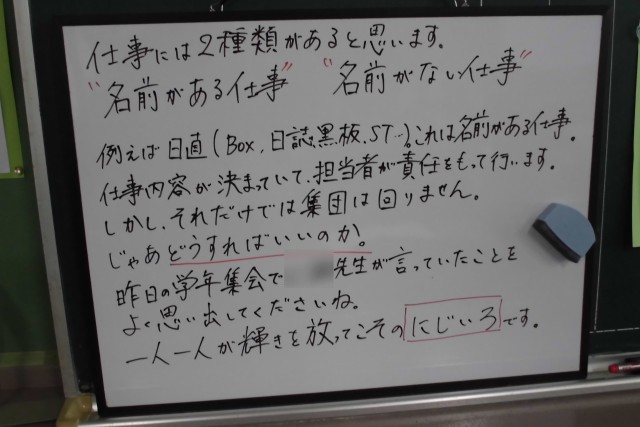 仕事には2種類があると思います。
"名前がある仕事" "名前がない仕事"
例えば日直(Box,日誌,黒板,ST…)。これは名前がある仕事。
仕事内容が決まっていて、担当者が責任をもって行います。
しかし、それだけでは集団は回りません。
じゃあどうすればいいのか。
昨日の学年集会で 先生が言っていたことを
よく思い出してくださいね。
一人一人が輝きを放ってこそのにじいろです。